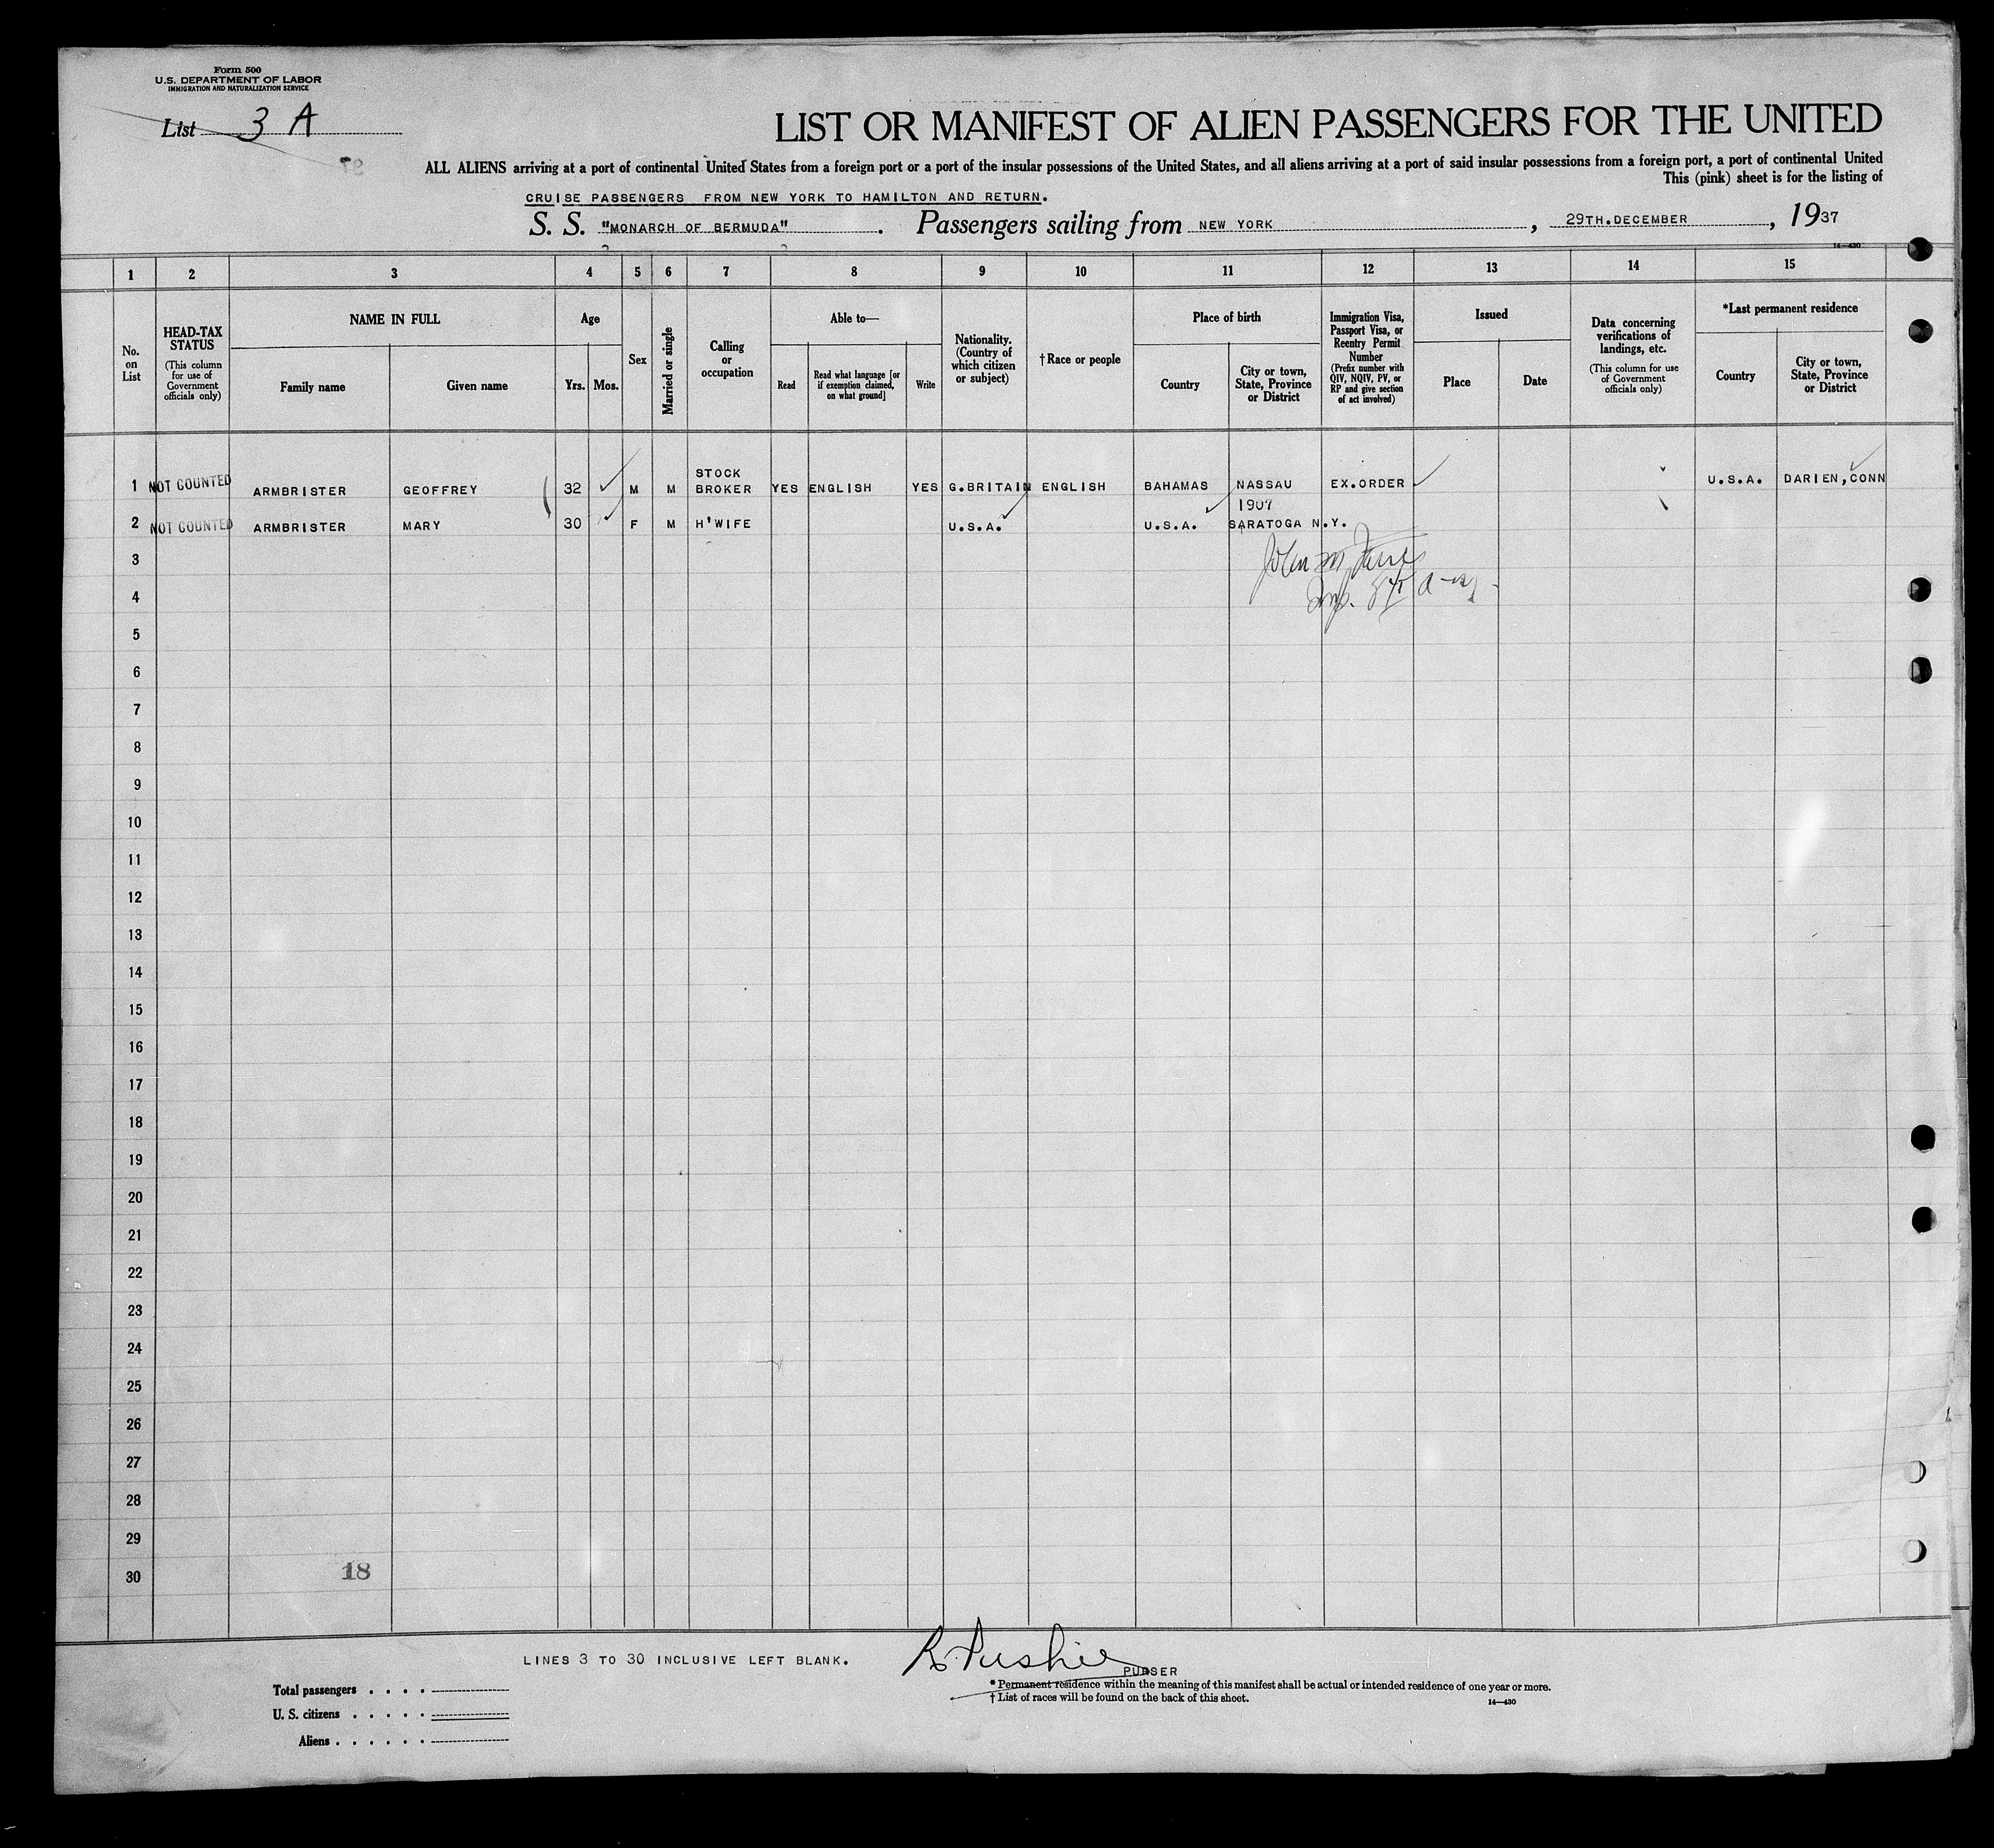 Form 500
U.S. DEPARTMENT OF LABOR
IMMIGRATION AND NATURALIZATION SERVICE
List 3 A
LIST OR MANIFEST OF ALIEN PASSENGERS FOR THE UNITED
ALL ALIENS arriving at a port of continental United States from a foreign port or a port of the insular possessions of the United States, and all aliens arriving at a port of said insular possessions from a foreign port, a port of continental United
This (pink) sheet is for the listing of
CRUISE PASSENGERS FROM NEW YORK TO HAMILTON AND RETURN.
S. S. "MONARCH OF BERMUDA". Passengers sailing from NEW YORK, 29TH.DECEMBER, 1937
14—430
1 2 3 4 5 6 7 8 9 10 11 12 13 14 15
No. on List
HEAD-TAX STATUS
(This column for use of Government officials only)
NAME IN FULL
Family name
Given name
Age
Yrs.
Mos.
Sex
Married or single
Calling or occupation
Able to—
Read
Read what language [or if exemption claimed, on what ground]
Write
Nationality. (Country of which citizen or subject)
†Race or people
Place of birth
Country
City or town, State, Province or District
Immigration Visa, Passport Visa, or Reentry Permit Number
(Prefix number with QIV, NQIV, PV, or RP and give section of act involved)
Issued
Place
Date
Data concerning verifications of landings, etc.
(This column for use of Government officials only)
*Last permanent residence
Country
City or town, State, Province or District
1 NOT COUNTED ARMBRISTER GEOFFREY 32 M M STOCK BROKER YES ENGLISH YES G.BRITAIN ENGLISH BAHAMAS NASSAU EX.ORDER U.S.A. DARIEN, CONN
1907
2 NOT COUNTED ARMBRISTER MARY 30 F M H'WIFE U.S.A. U.S.A. SARATOGA N.Y.
3
4
5
6
7
8
9
10
11
12
13
14
15
16
17
18
19
20
21
22
23
24
25
26
27
28
29
30
18
LINES 3 TO 30 INCLUSIVE LEFT BLANK.
PURSER
Total passengers . . . .
U. S. citizens . . . . .
Aliens . . . . . .
* Permanent residence within the meaning of this manifest shall be actual or intended residence of one year or more.
† List of races will be found on the back of this sheet.
14—430